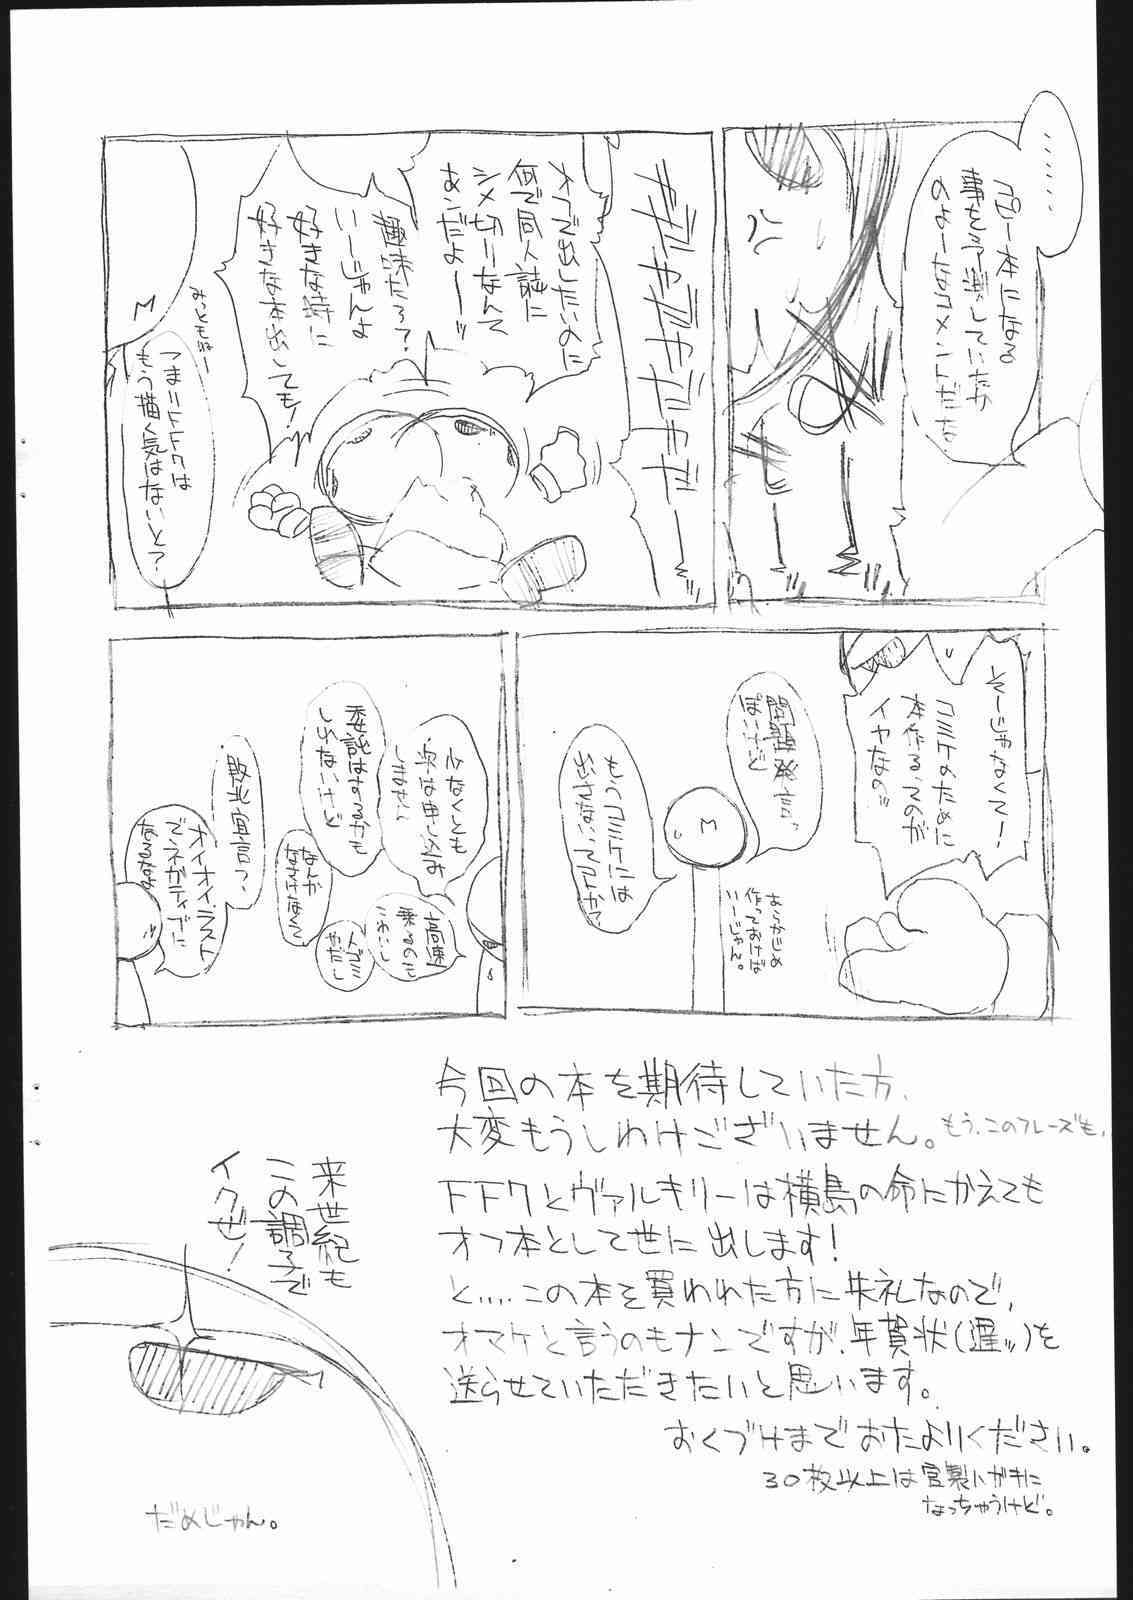 ……
コピー本になる
事を予測していたか
のよーなコメントだな
ヤダヤダヤダヤダヤダー
オフで出したいのに
何で同人誌に
シメ切りなんて
あんだよーッ
趣味だろ？
いーじゃんよ
好きな時に
好きな本出しても！
みっともねー
M
つまりFF7は
もう描く気はないと？
そーじゃなくてー
コミケのために
本作るってのが
イヤなの！
あらかじめ
作っておけば
いーじゃん。
問題発言っ
ぽいけど
M
もうコミケには
出ないってコトか？
少なくとも
次は申し込み
しません
委託はするかも
しれないけど
高速
乗るのも
こわいし
人ゴミ
やだし
なんか
なさけなくて
敗北宣言？
オイオイ、ラスト
でネガティブに
なるなよ
今回の本を期待していた方、
大変もうしわけございません。もう、このフレーズも、
FF7とヴァルキリーは横島の命にかえても
オフ本として世に出します！
と‥‥この本を買われた方に失礼なので、
オマケと言うのもナンですが、年賀状(遅ッ)を
送らせていただきたいと思います。
おくづけまでおたよりください。
30枚以上は官製ハガキに
なっちゃうけど。
来世紀も
この調子で
イクぜ！
だめじゃん。